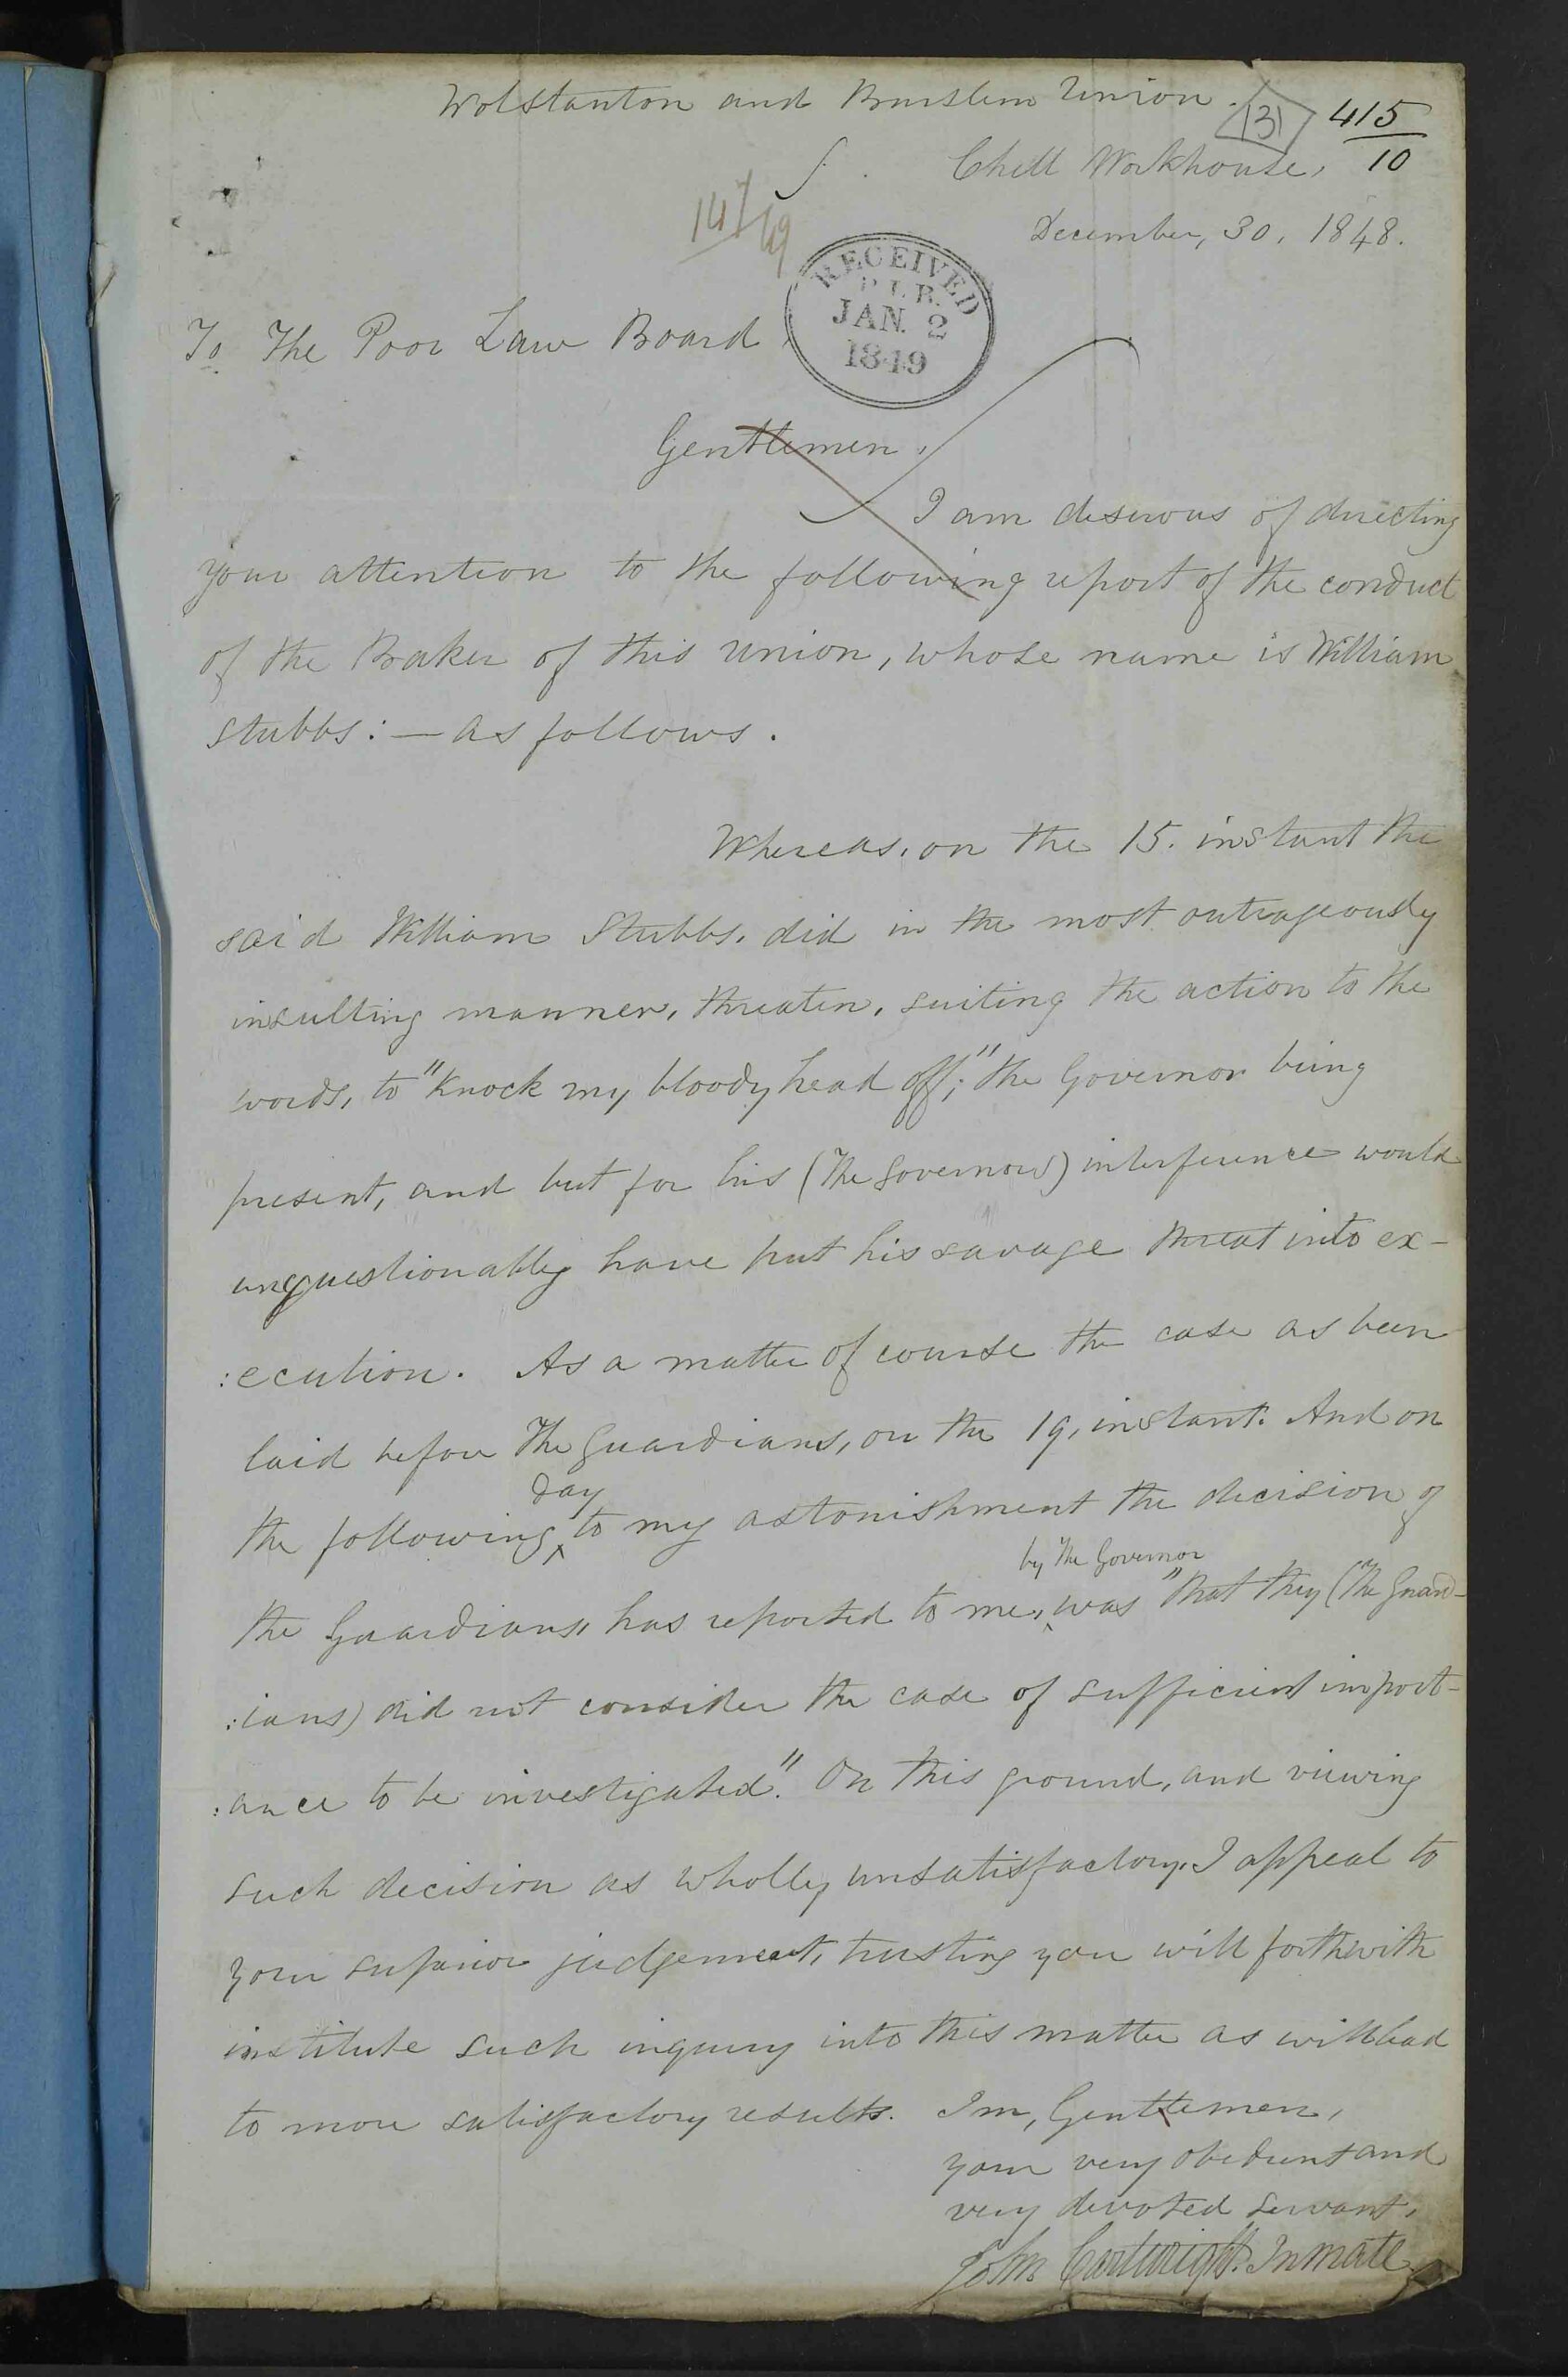 Wolstanton and Burslem Union.
131 415
10
Chell Workhouse,
December, 30, 1848.
RECEIVED
P.L.B.
JAN. 2
1849
To The Poor Law Board
Gentlemen,
I am desirous of directing
your attention to the following report of the conduct
of the Baker of this union, whose name is William
Stubbs: — as follows.
Whereas, on the 15. instant the
said William Stubbs, did in the most outrageously
insulting manner, threaten, suiting the action to the
words, to "knock my bloody head off;" the Governor being
present, and but for his (The Governors) interference would
unquestionably have put his savage threat into ex-
:ecution. As a matter of course the case as been
laid before The Guardians, on the 19, instant. And on
the following day to my astonishment the decision of
the Guardians, has reported to me, by The Governor was "that they (The Guard-
:ians) did not consider the case of sufficient import-
:ance to be investigated." On this ground, and viewing
such decision as wholly unsatisfactory, I appeal to
your superior judgement, trusting you will forthwith
institute such inquiry into this matter as will lead
to more satisfactory results. I'm, Gentlemen,
your very obedient and
very devoted servant,
John Cartwright. Inmate.